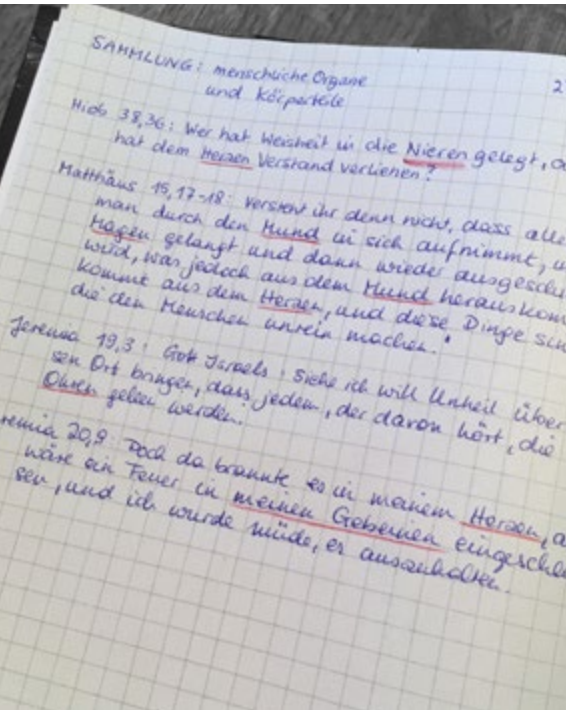 SAMMLUNG: menschliche Organe
2
und Körperteile
Hiob 38,36: Wer hat Weisheit in die Nieren gelegt, o
hat dem Herzen Verstand verliehen?
Matthäus 15,17-18: Versteht ihr denn nicht, dass alle
man durch den Mund in sich aufnimmt, i
Magen gelangt und dann wieder ausgeschi
wird, was jedoch aus dem Mund herauskom
kommt aus dem Herzen, und diese Dinge sin
die den Menschen unrein machen.
Jeremia 19,3: Gott Israels: Siehe ich will Unheil über
sen Ort bringen, dass jedem, der davon hört, die
Ohren gellen werden.
remia 20,9: Doch da brannte es in meinem Herzen, a
wäre ein Feuer in meinen Gebeinen eingeschl
sen, und ich wurde müde, es auszuhalten.